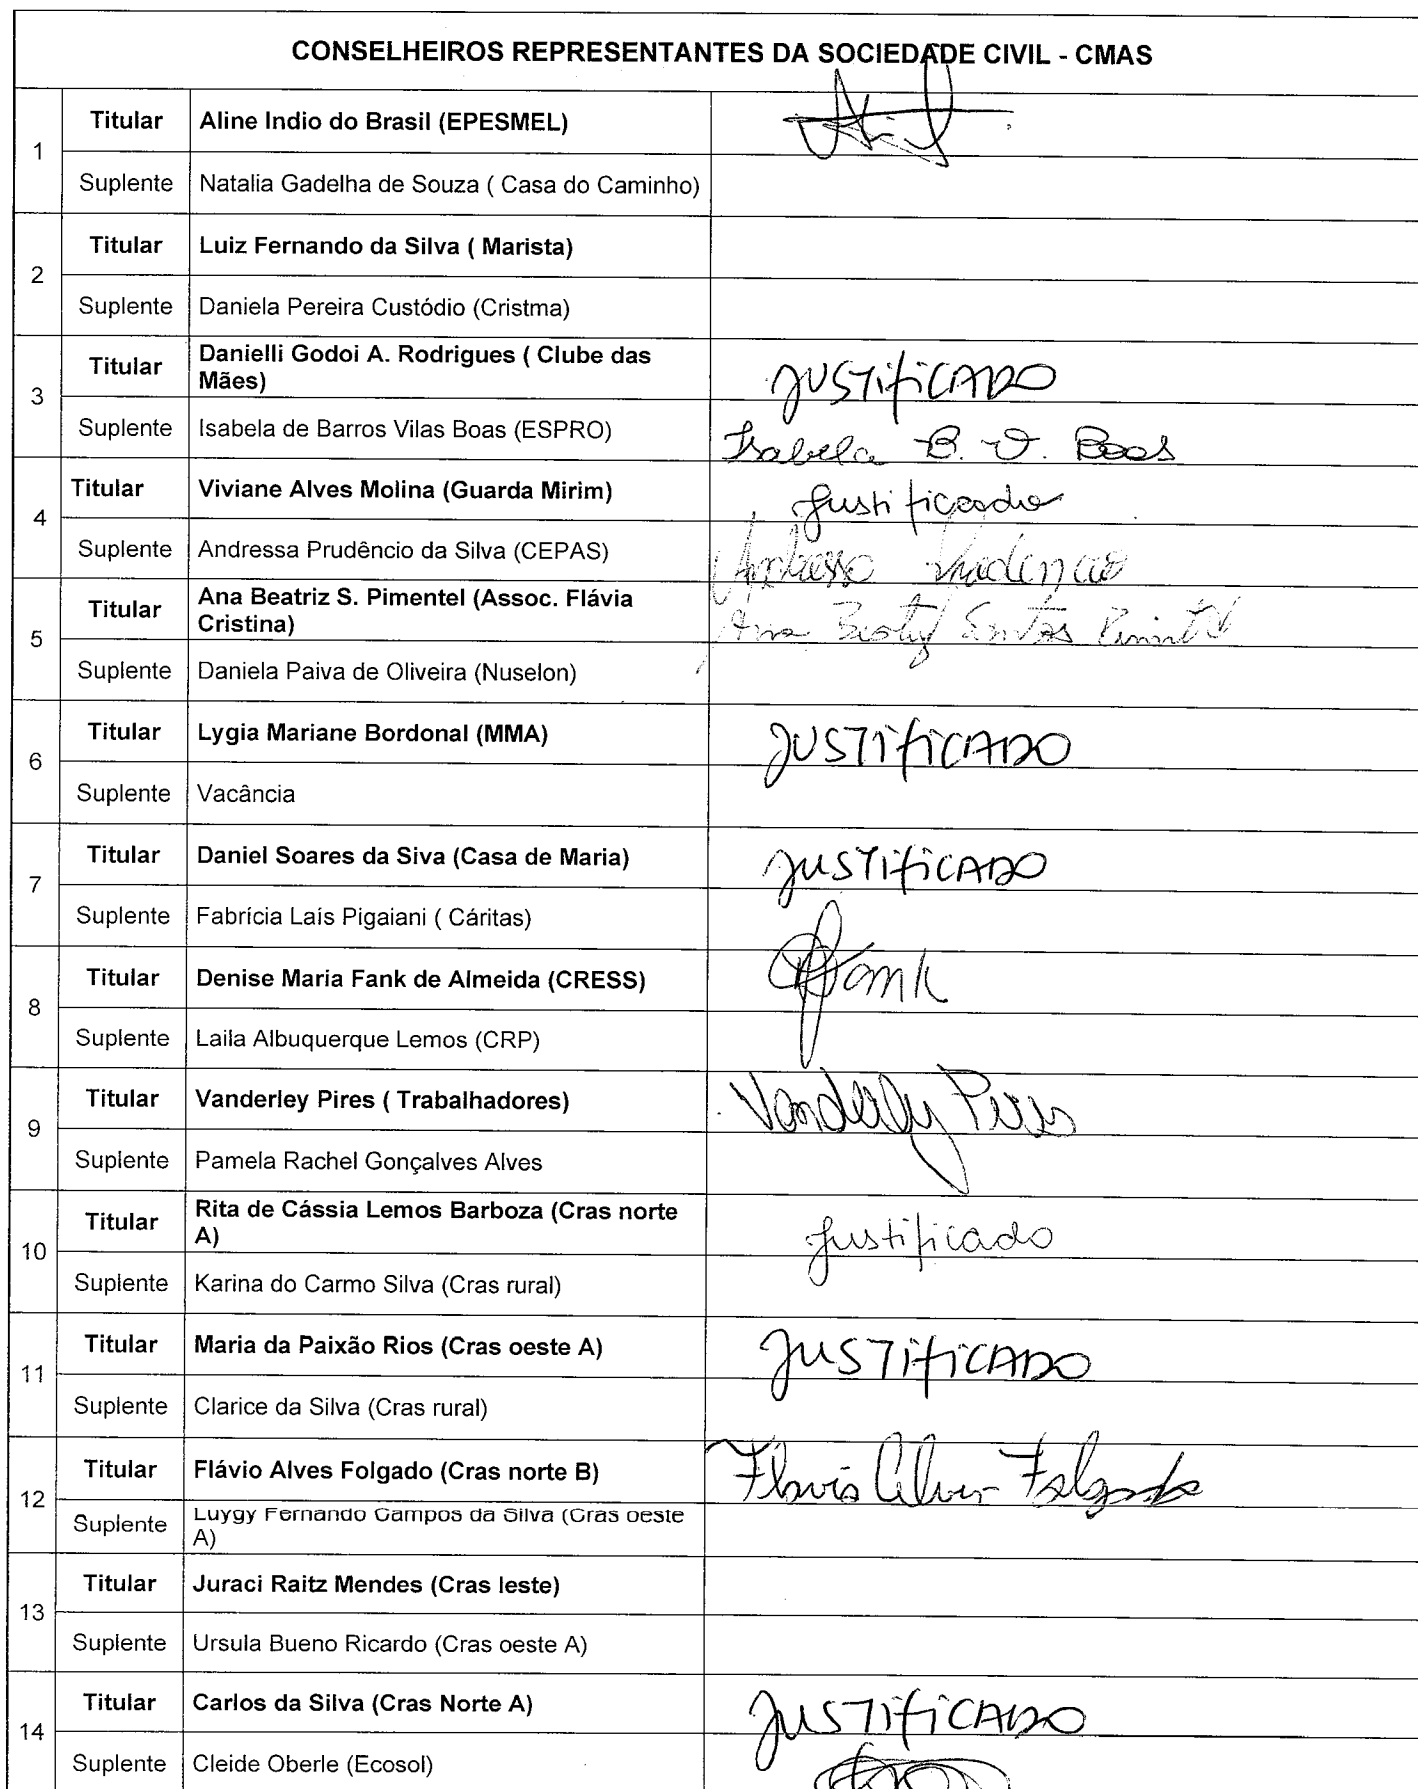 CONSELHEIROS REPRESENTANTES DA SOCIEDADE CIVIL - CMAS
1
Titular Aline Indio do Brasil (EPESMEL)
Suplente Natalia Gadelha de Souza ( Casa do Caminho)
2
Titular Luiz Fernando da Silva ( Marista)
Suplente Daniela Pereira Custódio (Cristma)
3
Titular Danielli Godoi A. Rodrigues ( Clube das
Mães) JUSTIFICADO
Suplente Isabela de Barros Vilas Boas (ESPRO) Isabela B. V. Boas
4
Titular Viviane Alves Molina (Guarda Mirim) Justificado
Suplente Andressa Prudêncio da Silva (CEPAS)
5
Titular Ana Beatriz S. Pimentel (Assoc. Flávia
Cristina) Ana Beatriz Santos Pimentel
Suplente Daniela Paiva de Oliveira (Nuselon)
6
Titular Lygia Mariane Bordonal (MMA) JUSTIFICADO
Suplente Vacância
7
Titular Daniel Soares da Siva (Casa de Maria) JUSTIFICADO
Suplente Fabrícia Laís Pigaiani ( Cáritas)
8
Titular Denise Maria Fank de Almeida (CRESS) Fank
Suplente Laila Albuquerque Lemos (CRP)
9
Titular Vanderley Pires ( Trabalhadores) Vanderley Pires
Suplente Pamela Rachel Gonçalves Alves
10
Titular Rita de Cássia Lemos Barboza (Cras norte
A) Justificado
Suplente Karina do Carmo Silva (Cras rural)
11
Titular Maria da Paixão Rios (Cras oeste A) JUSTIFICADO
Suplente Clarice da Silva (Cras rural)
12
Titular Flávio Alves Folgado (Cras norte B) Flavio Alves Folgado
Suplente Luygy Fernando Campos da Silva (Cras oeste
A)
13
Titular Juraci Raitz Mendes (Cras leste)
Suplente Ursula Bueno Ricardo (Cras oeste A)
14
Titular Carlos da Silva (Cras Norte A) JUSTIFICADO
Suplente Cleide Oberle (Ecosol)